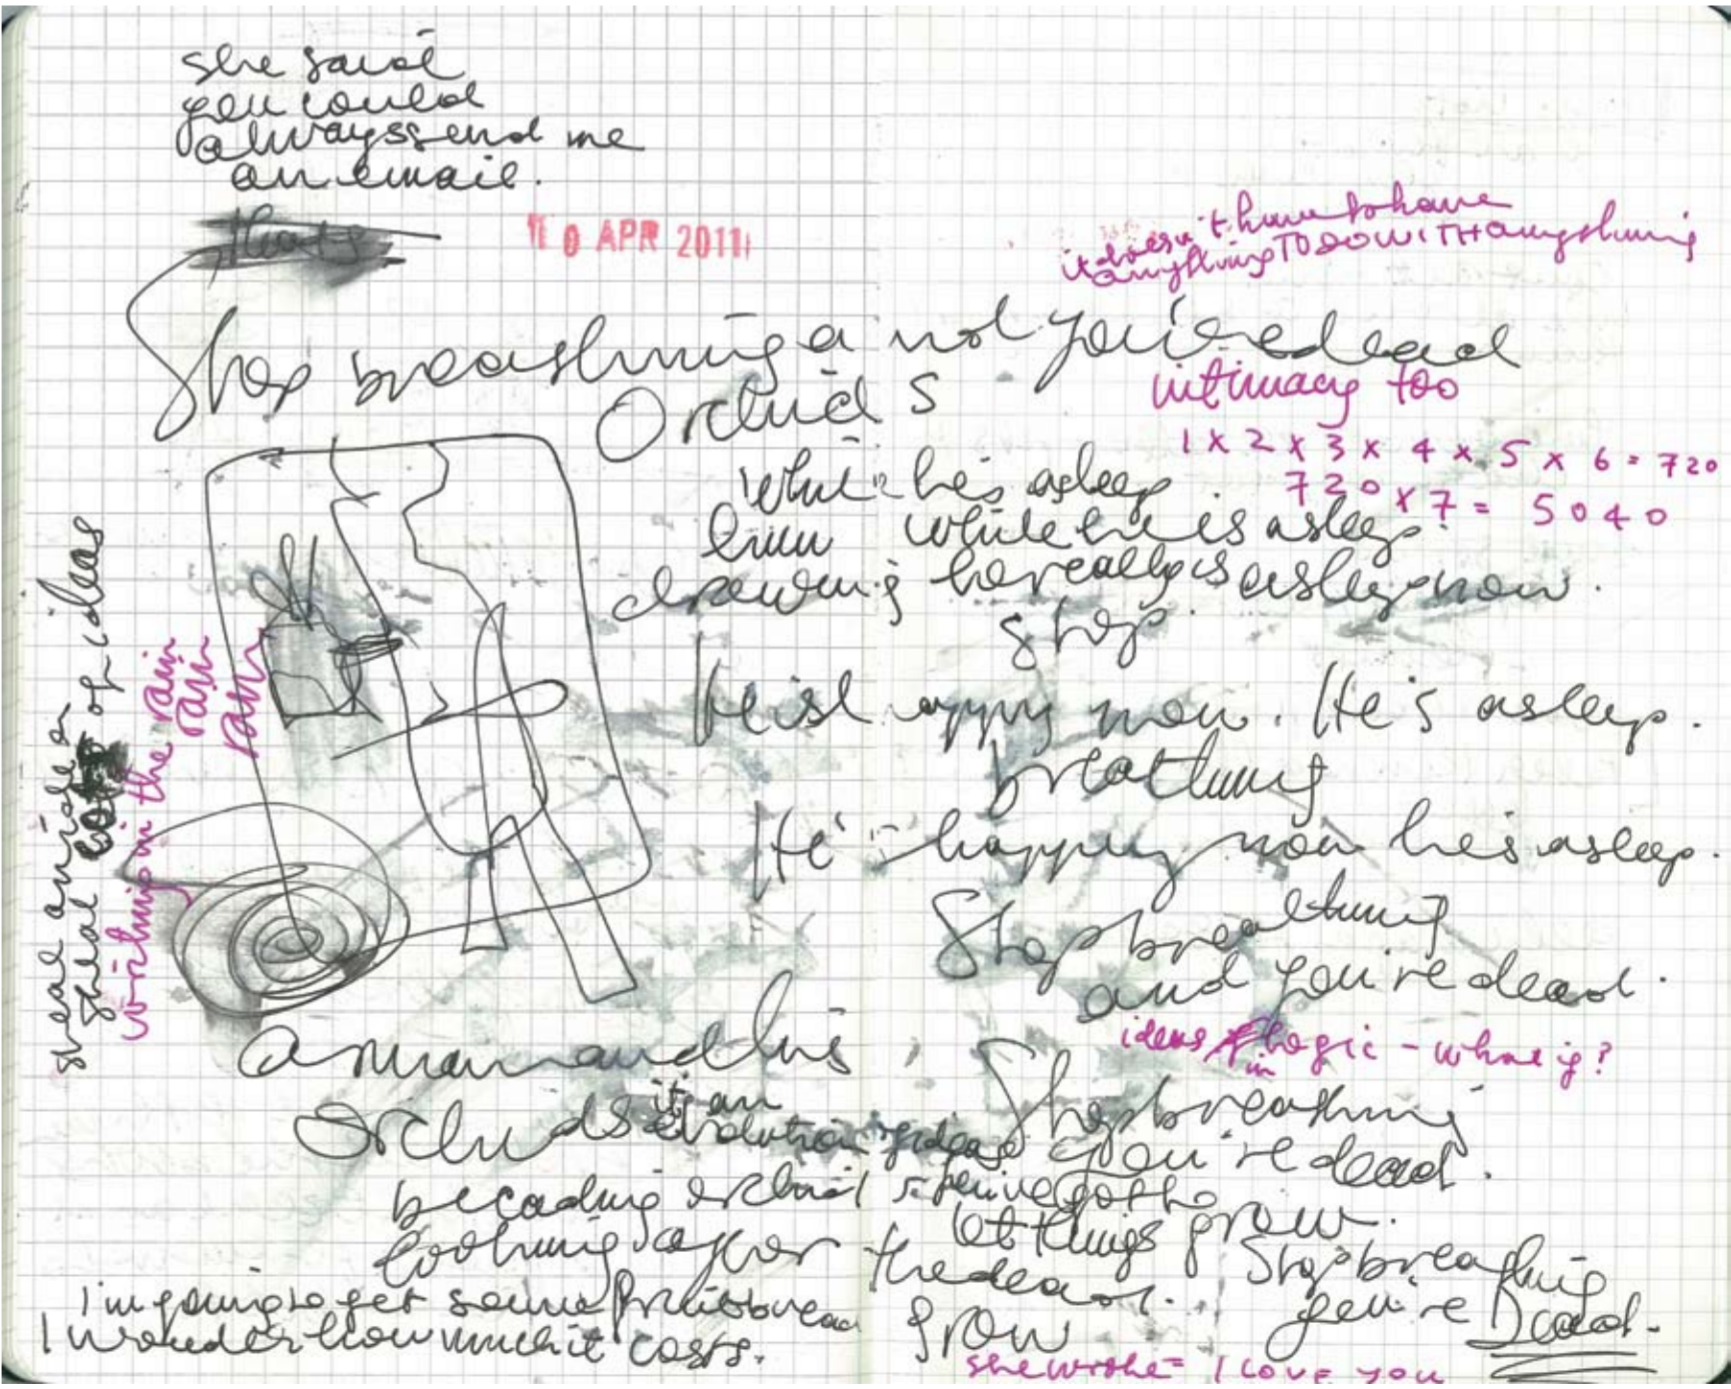 she said
you could
always send me
an email.
10 APR 2011
it doesn't have to have
anything TO DO WITH anything
Stop breathing a not you're dead
Orchids
intimacy too
1 x 2 x 3 x 4 x 5 x 6 = 720
720 x 7 = 5040
while he's asleep
while he is asleep
drawing he really is asleep now.
stop.
He is happy now. He's asleep.
breathing
He is happy now he's asleep.
Stop breathing
and you're dead.
steal an idea or
steal lots of ideas
writing in the rain
rain
rain
ideas in logic - what is?
a man and his
Orchids
it's an
evolution of ideas
Stop breathing
you're dead.
let things grow.
looking after
the dead.
grow
Stop breathing
you're Dead.
I'm going to get some fruit bread
I wonder how much it costs.
she wrote = I LOVE YOU